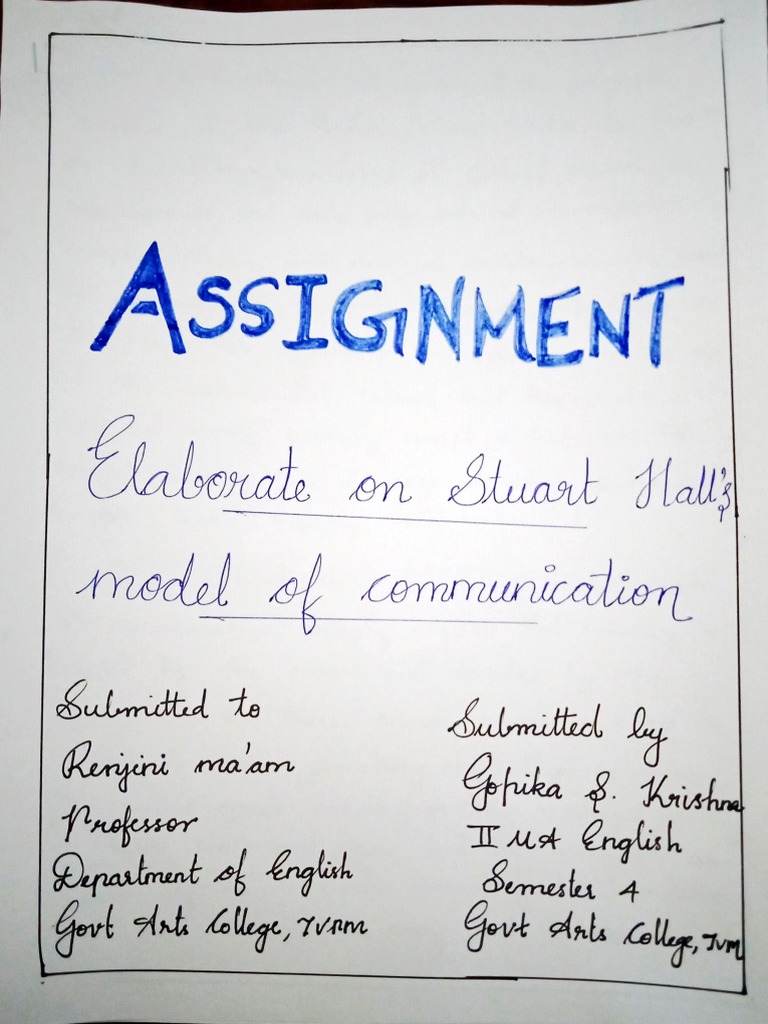 ASSIGNMENT
Elaborate on Stuart Hall's
model of communication
Submitted to
Renjini ma'am
Professor
Department of English
Govt Arts College, TVRM
Submitted by
Gopika S. Krishna
II MA English
Semester 4
Govt Arts College, TVM